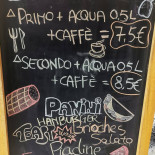 △ PRIMO + ACQUA 0.5L
+ CAFFÈ = 7,5€
△ SECONDO + ACQUA 0.5L
+ CAFFÈ = 8,5€
Panini
HAMBURGER
Brioches
Salato
Piadine